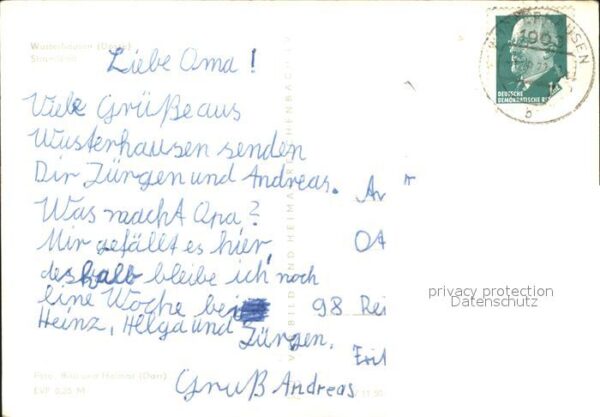 Wusterhausen (Dosse)
Strandbad
Liebe Oma!
Viele Grüße aus
Wusterhausen senden
Dir Jürgen und Andreas.
Was macht Opa?
Mir gefällt es hier,
deshalb bleibe ich noch
eine Woche bei
Heinz, Helga und Jürgen.
Gruß Andreas
An
OA
98 Rei
Foto, Bild und Heimat (Darr)
EVP 0,25 M
BILD UND HEIMAT REICHENBACH
DEUTSCHE
DEMOKRATISCHE RE
190
HAUSEN
b
privacy protection
Datenschutz